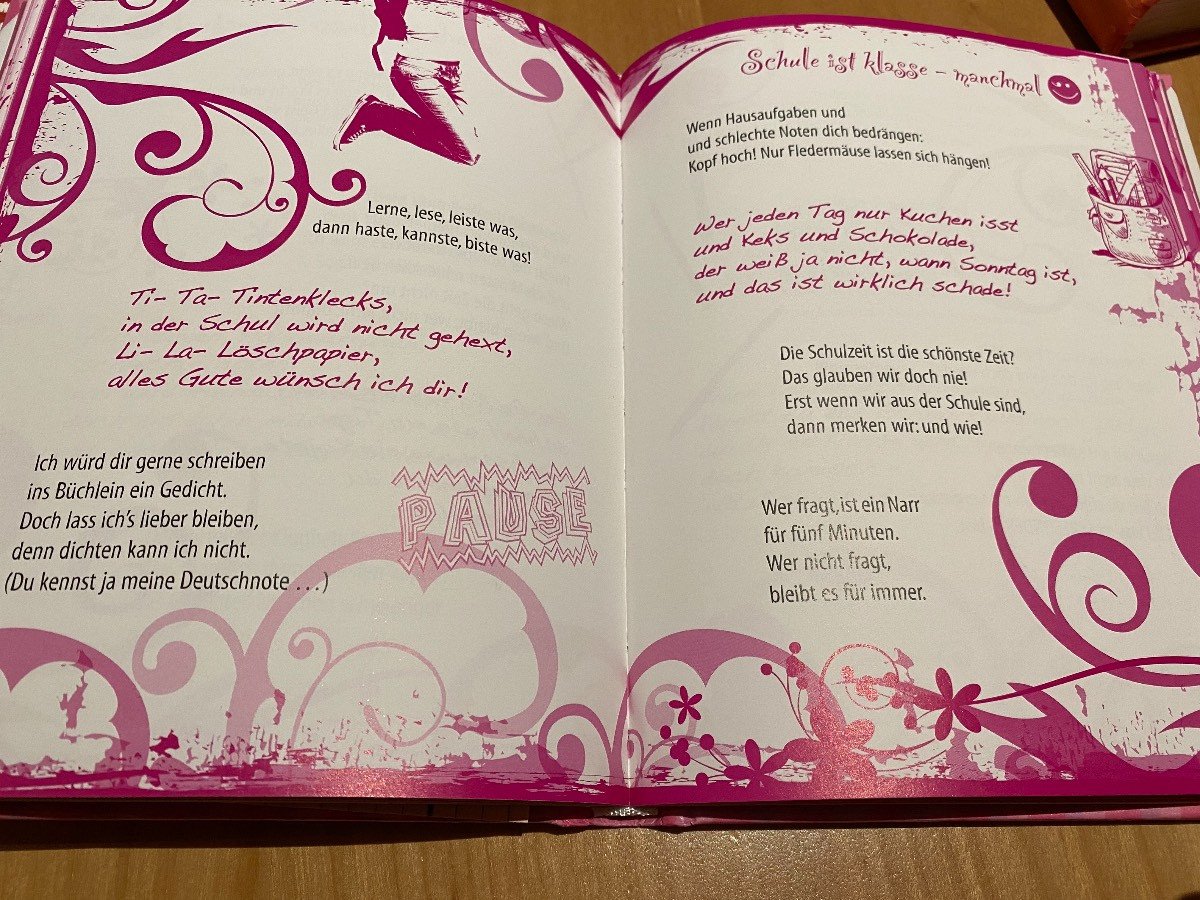 Lerne, lese, leiste was,
dann haste, kannste, biste was!
Ti- Ta- Tintenklecks,
in der Schul wird nicht gehext,
Li- La- Löschpapier,
alles Gute wünsch ich dir!
Ich würd dir gerne schreiben
ins Büchlein ein Gedicht.
Doch lass ich's lieber bleiben,
denn dichten kann ich nicht.
(Du kennst ja meine Deutschnote . . .)
PAUSE
Schule ist klasse – manchmal
Wenn Hausaufgaben und
und schlechte Noten dich bedrängen:
Kopf hoch! Nur Fledermäuse lassen sich hängen!
Wer jeden Tag nur Kuchen isst
und Keks und Schokolade,
der weiß ja nicht, wann Sonntag ist,
und das ist wirklich schade!
Die Schulzeit ist die schönste Zeit?
Das glauben wir doch nie!
Erst wenn wir aus der Schule sind,
dann merken wir: und wie!
Wer fragt, ist ein Narr
für fünf Minuten.
Wer nicht fragt,
bleibt es für immer.